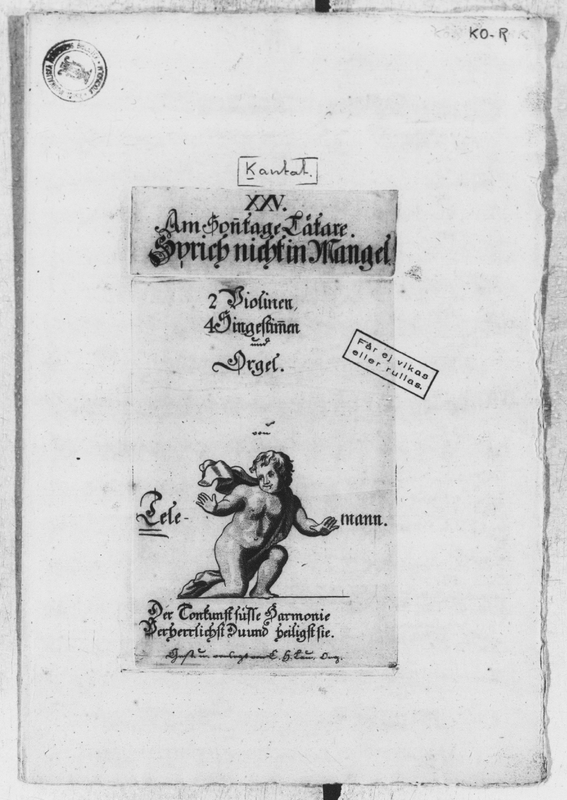 KO-R
Kantat.
XXV.
Am Sontage Lätare.
Sprich nicht in Mangel
2 Violinen,
4 Singestimen
und
Orgel.
Får ej vikas
eller rullas.
von
Tele-
mann.
Der Tonkunst süsse Harmonie
Verherrlichst Du und heiligst sie.